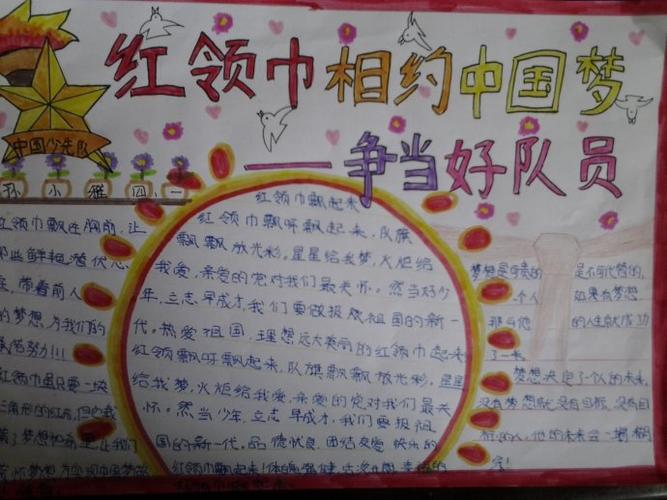 红领巾相约中国梦
——争当好队员
中国少年队
孙小雅四一
红领巾飘在胸前，让
那些鲜艳潜伏心
带着前人
的梦想，为我们的
努力!!!
红领巾虽只要一块
三角形的红布，但它载
了梦想和希望，让我们
梦想，为实现中国梦做
红领巾飘起来
红领巾飘呀飘起来，队旗
飘飘放光彩。星星给我梦，火炬给
我爱，亲爱的党对我们最关怀。然当好少
年，立志早成才，我们要做报效祖国的新一
代。热爱祖国，理想远大美丽的红领巾起来
红领飘呀飘起来，队旗飘飘放光彩。星星
给我梦，火炬给我爱，亲爱的党对我们最关
怀。然当少年，立志早成才，我们要报祖
国的新一代。品德优良，团结友爱快乐的
红领巾飘起来！体魄强健，活泼
梦想是可贵的 是不可代替的，
一个人 如果有梦想
那么他 的人生就成功
了一半
梦想决定了个人的未来，
没有梦想就没有目标，没有目
标的人，他的未来会一塌糊